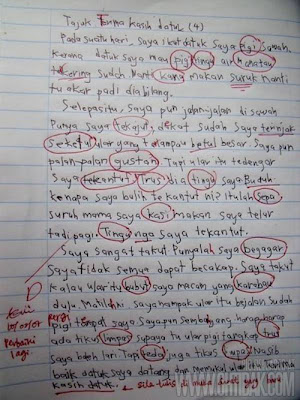 Tajuk Terima kasih datuk (4)
Pada suatu hari, saya ikut datuk saya pigi sawah.
kerana datuk saya mau pigi kring air
kering sudah nanti kang makan suruk nanti
tu akar padi dia bilang.
Selepas itu, saya pun jalan-jalan di sawah
punya saya tekajut, dikut sudah saya ternjak
seketul ular yang telampau betul besar. Saya pun
palan-palar gustan Tapi ular itu tedengar
Saya tekantut. Trus dia tingu saya Buduh
kenapa saya bulih tekantut ni? Itulah Sepa
suruh mama saya kasi makan saya telar
tadi pagi. Tingu nga saya tekantut.
Saya sangat takut Punyalah saya begagar
Saya tidak semua dapat becakap. Saya takut
kalau ular itu gubut saya macam yang karabau
dulu. Matilah ni. Saya nampak ular itu bejalan sudah
pigi tempat saya. Saya pun Sembayang harap-harap
ada tikus limpas supaya tu ular pigi tangkap trus
saya buleh lari. Tapi kedai juga tikus lupa. Nasib
baik datuk saya datang dan memukul ular itu. Terima
kasih datuk.
10/10/07
Perbaiki
lagi.
www.OMIBAK.com